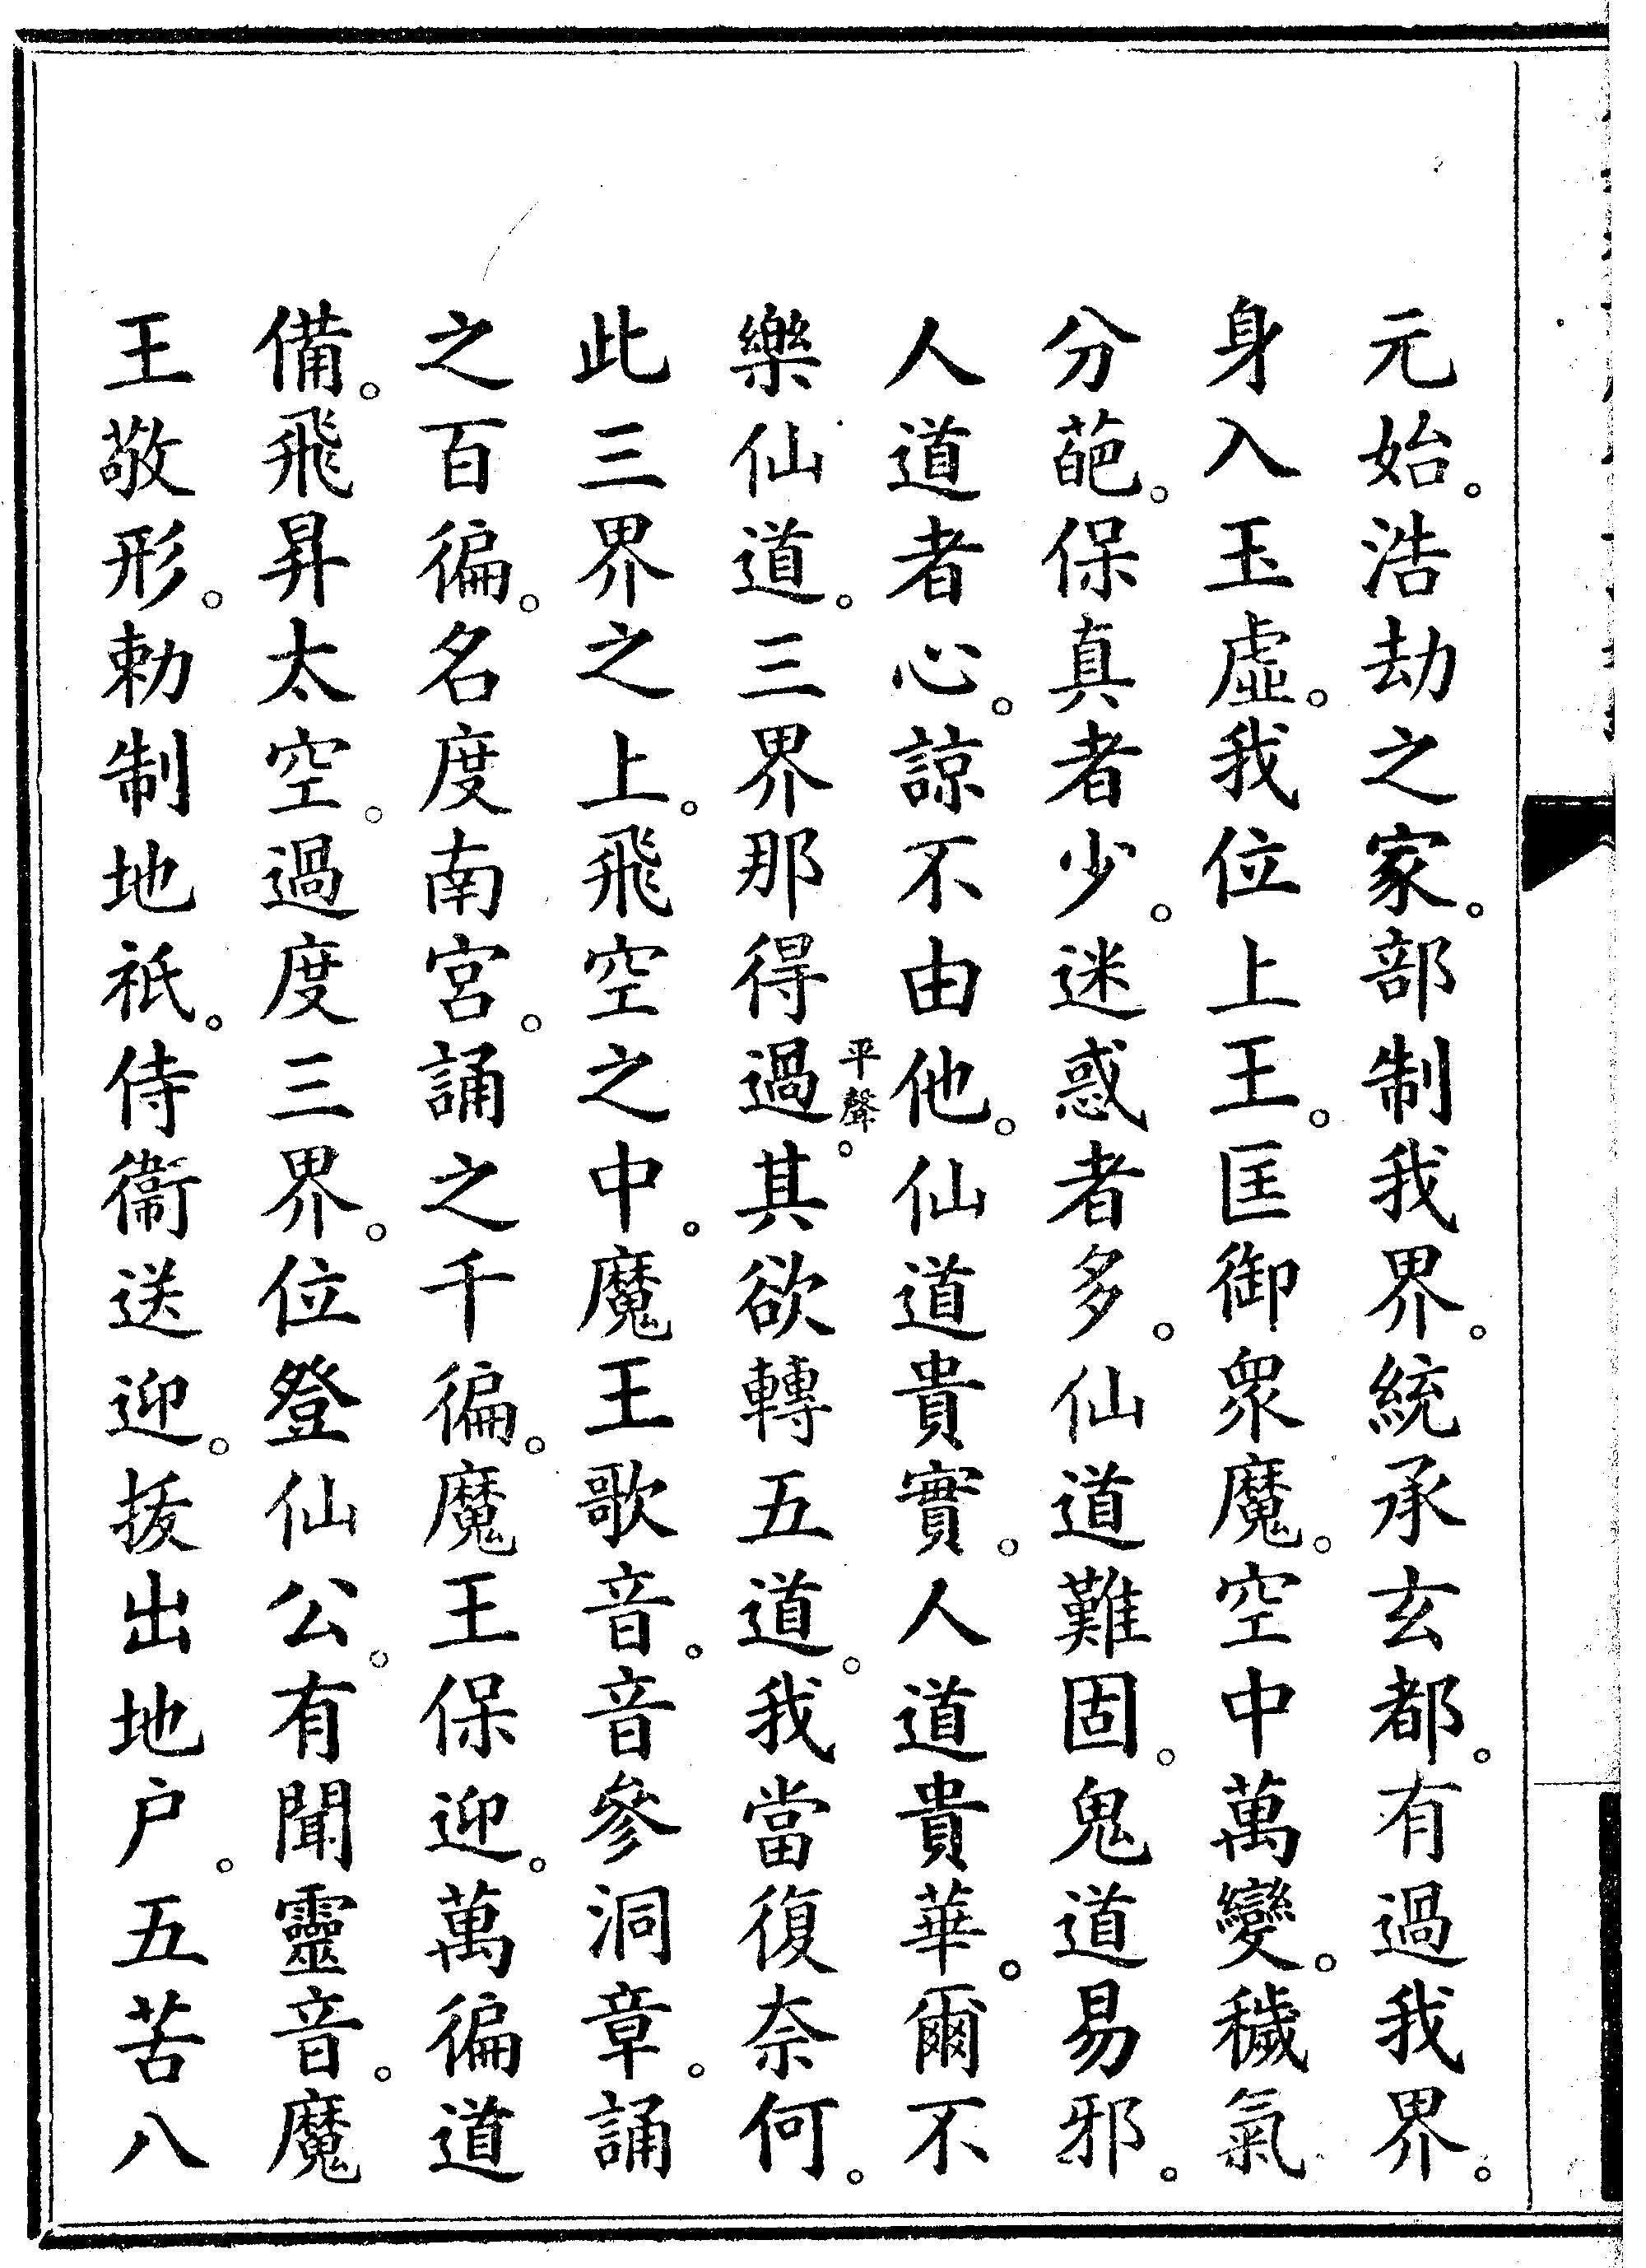 元始。浩劫之家。部制我界。統承玄都。有過我界。
身入玉虛。我位上王。匡御眾魔。空中萬變。穢氣
分葩。保真者少。迷惑者多。仙道難固。鬼道易邪。
人道者心。諒不由他。仙道貴實。人道貴華。爾不
樂仙道。三界那得過平聲。其欲轉五道。我當復奈何。
此三界之上。飛空之中。魔王歌音。音參洞章。誦
之百徧。名度南宮。誦之千徧。魔王保迎。萬徧道
備。飛昇太空。過度三界。位登仙公。有聞靈音。魔
王敬形。勑制地祇。侍衞送迎。拔出地户。五苦八